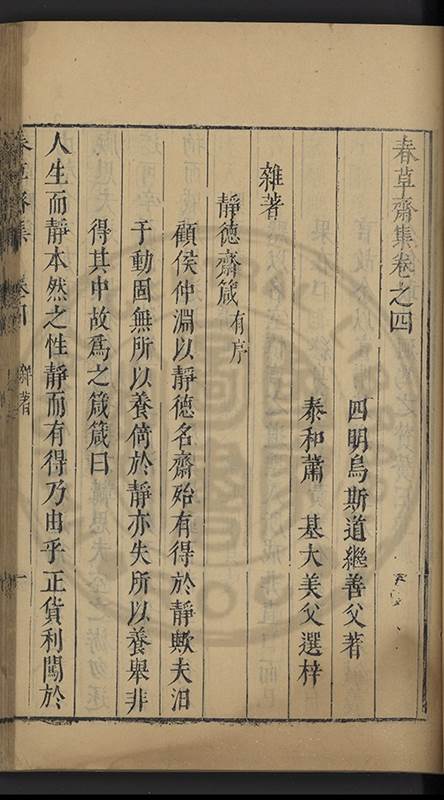 春草齋集卷之四
四明烏斯道繼善父著
泰和蕭　基大美父選梓
雜著
靜德齋箴有序
顧侯仲淵以靜德名齋殆有得於靜歟夫汨
于動固無所以養倚於靜亦失所以養舉非
得其中故爲之箴箴曰
人生而靜本然之性靜而有得乃由乎正貨利鬩於
春草齋集　卷四　雜著　一